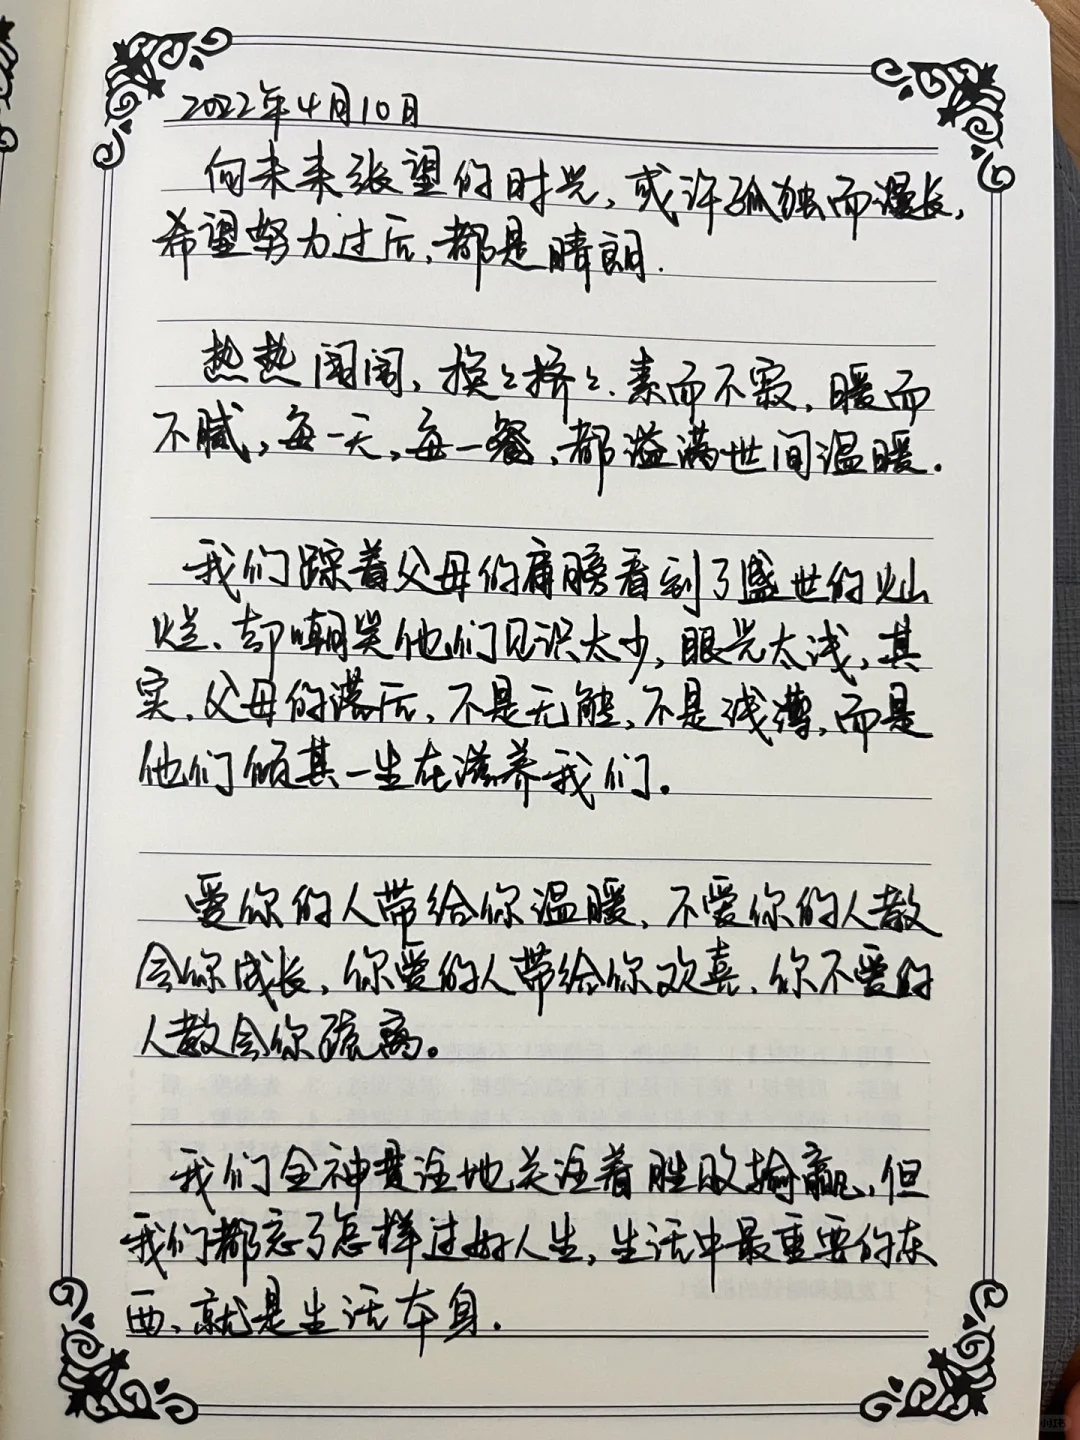 2022年4月10日
向未来张望的时光，或许孤独而漫长，
希望努力过后，都是晴朗.
热热闹闹，挨々挤々.素而不寂，暖而
不腻，每一天，每一餐，都溢满世间温暖.
我们踩着父母的肩膀看到了盛世的灿
烂、却嘲笑他们见识太少，眼光太浅，其
实，父母的落后，不是无能，不是浅薄，而是
他们倾其一生在滋养我们。
爱你的人带给你温暖、不爱你的人教
会你成长，你爱的人带给你欢喜、你不爱的
人教会你疏离。
我们全神贯注地关注着胜败输赢，但
我们都忘了怎样过好人生，生活中最重要的东
西、就是生活本身.